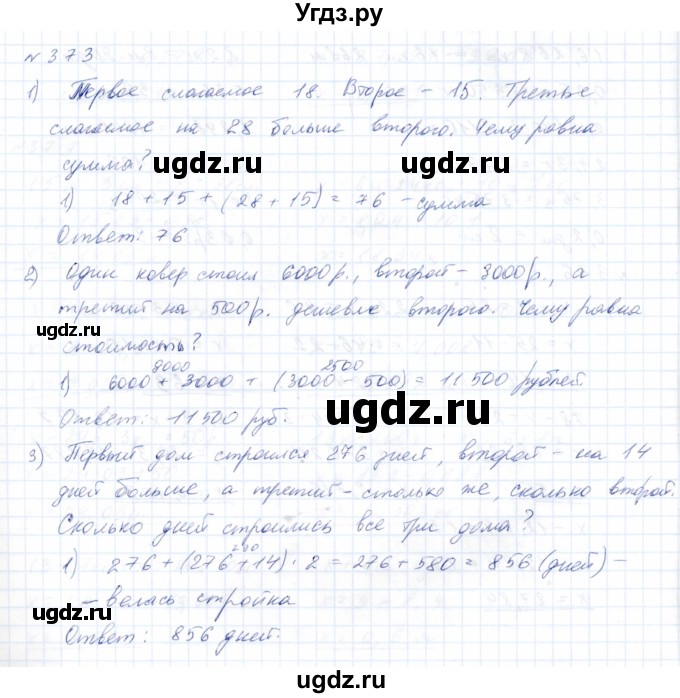 Угдз.ру
№ 373
1) Первое слагаемое 18. Второе – 15. Третье
слагаемое на 28 больше второго. Чему равна
сумма?
ugdz.ru ugdz.ru
1) 18 + 15 + (28 + 15) = 76 – сумма
Ответ: 76
ugdz.ru
2) Один ковер стоил 6000р., второй – 3000р., а
третий на 500р. дешевле второго. Чему равна
ugdz.ru
стоимость?
9000 2500
1) 6000 + 3000 + (3000 – 500) = 11 500 рублей
ugdz.ru
Ответ: 11 500 руб.
3) Первый дом строился 276 дней, второй – на 14
дней больше, а третий – столько же, сколько второй.
Сколько дней строились все три дома?
290
1) 276 + (276 + 14) · 2 = 276 + 580 = 856 (дней) –
ugdz.ru ugdz.ru
– велась стройка
Ответ: 856 дней.
ugdz.ru
ugdz.ru